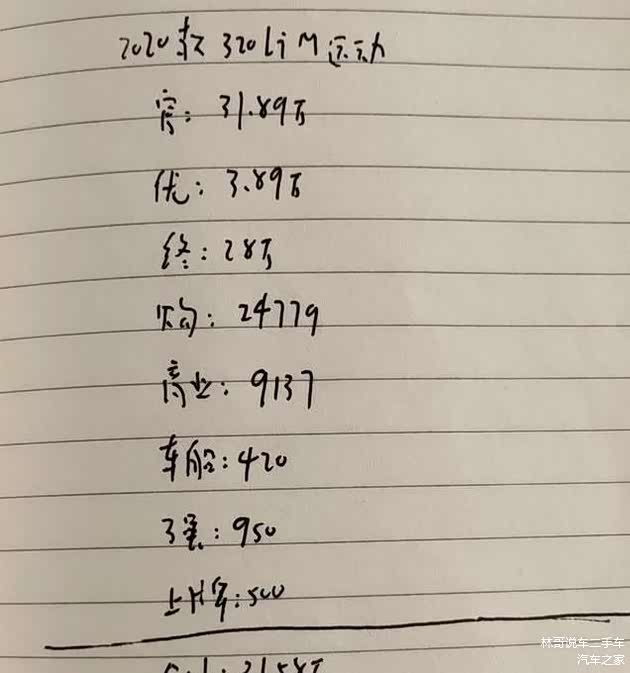 2020款 320Li M运动
官: 31.89万
优: 3.89万
终: 28万
购: 24779
商业: 9137
车船: 420
交强: 950
上牌: 500
林哥说车二手车
汽车之家